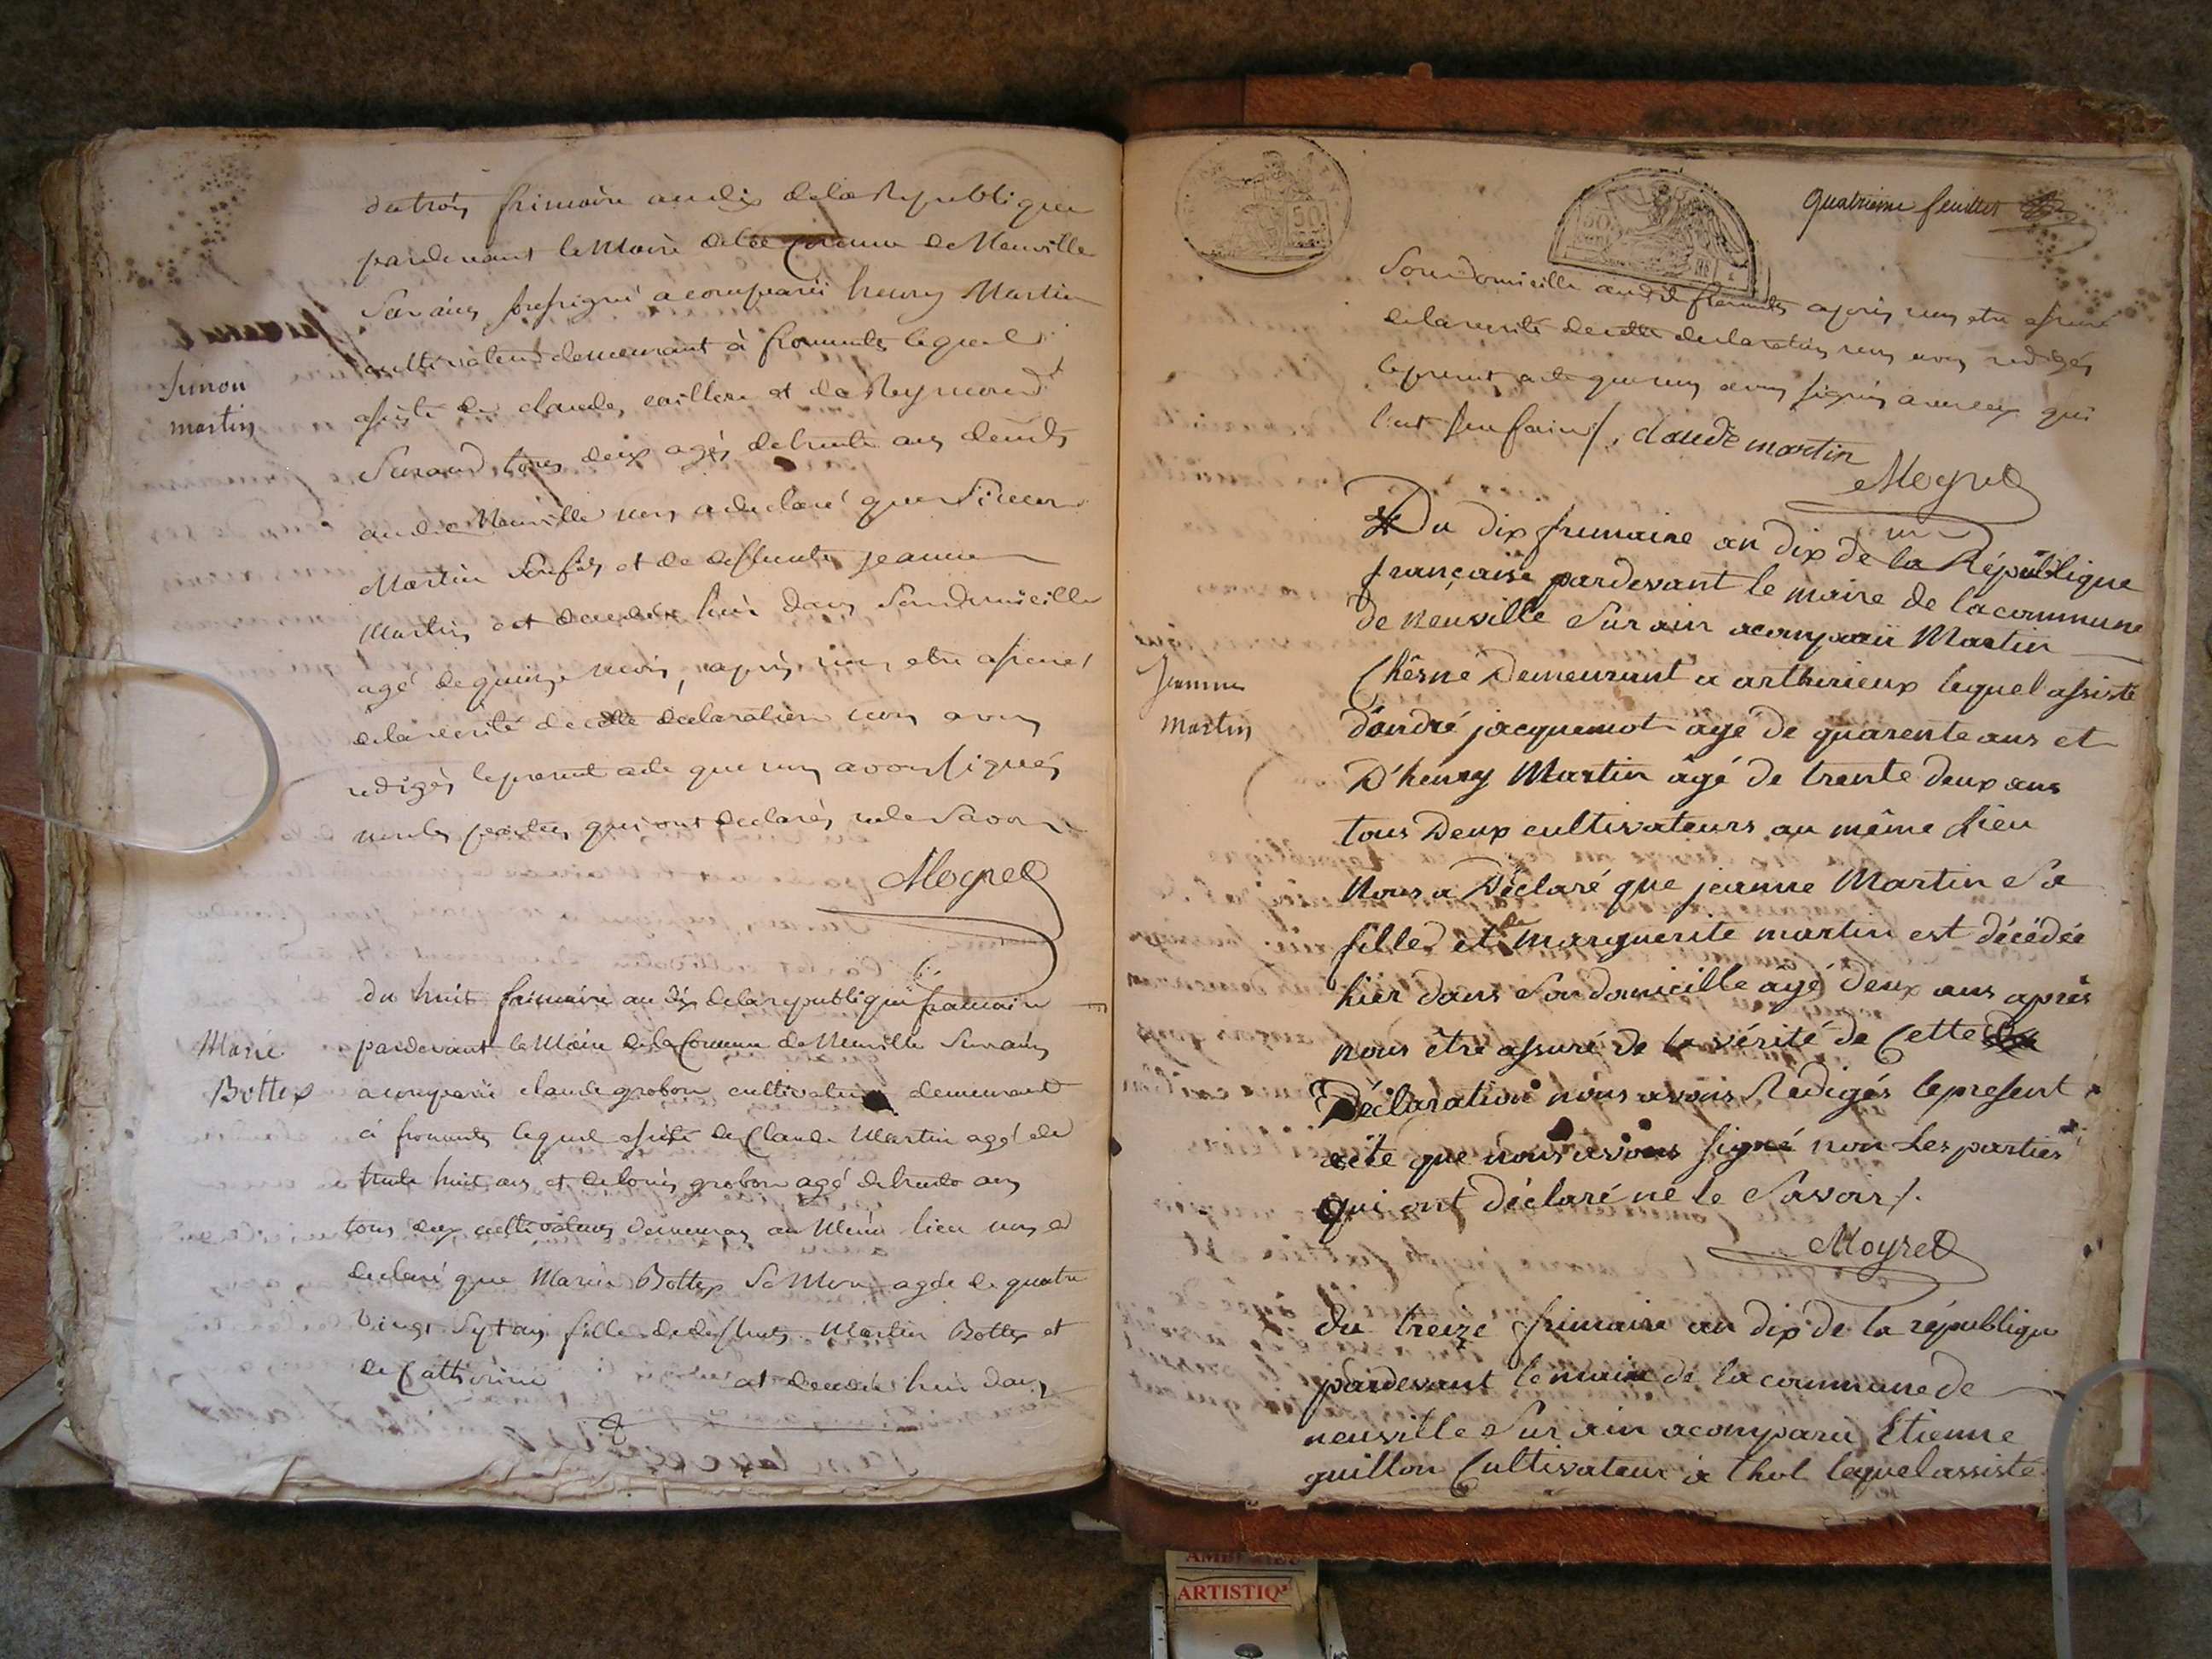 du trois frimaire an dix de la Republique
pardevant le Maire de la Comune de Neuville
Sur ains sousigné a comparû henry Martin
cultivateur demeurant à fromente lequel
assisté de claude caillere et de Reymond
Surand tous deux agés de trente ans deux
audit Neuville nous a declaré que Simon
Martin Son fils et de defunte jeanne
Martin est decedé hier dans Son domicille
agé de quinze mois, apres nous etre assuré
de la verité de cette declaration nous avons
redigés le present acte que nous avons signés
non les parties qui ont declarés ne le Savoir
Moyret
Simon
martin
du huit frimaire an dix de la republique francaise
pardevant le Maire de la Comune de Neuville Sur ains
a comparû claude grobon cultivateur demeurant
à fromente lequel assisté de Claude Martin agé de
trente huit ans et de louis grobon agé de trente ans
tous deux cultivateurs demeurans au Meme lieu nous a
declaré que Marie Bottex Sa Mere agée de quatre
Vingt Sept ans fille de defunts Martin Bottex et
de Catherine est decedée hier dans
Marie
Bottex
Quatrieme feuillet
50
50
Son domicille audit fromente apres nous etre assuré
de la verité de cette declaration nous avons redigés
le present acte que nous avons signés avec ceux qui
l'ont su faire /. claude martin
Moyret
m
Du dix frimaire an dix de la République
française pardevant le maire de la commune
De neuville Sur ain a comparû Martin
Chêsne Demeurant a arthurieux lequel assisté
d'andré jacquemot agé De quarente ans et
D'henry Martin âgé de trente deux ans
tous Deux cultivateurs au même Lieu
Nous a Déclaré que jeanne Martin Sa
fille et de marguerite martin est décédée
hier dans Son domicille âgé deux ans après
nous être assuré de la vérité de Cette
Déclaration nous avons Redigés le present
acte que nous avons signé non Les parties
qui ont déclaré ne le Savoir /.
Moyret
Jeanne
Martin
du treize frimaire an dix de la république
pardevant le maire de la commune de
neuville Sur ain a comparu Etienne
guillon Cultivateur à thol lequel assisté
ARTISTIQ